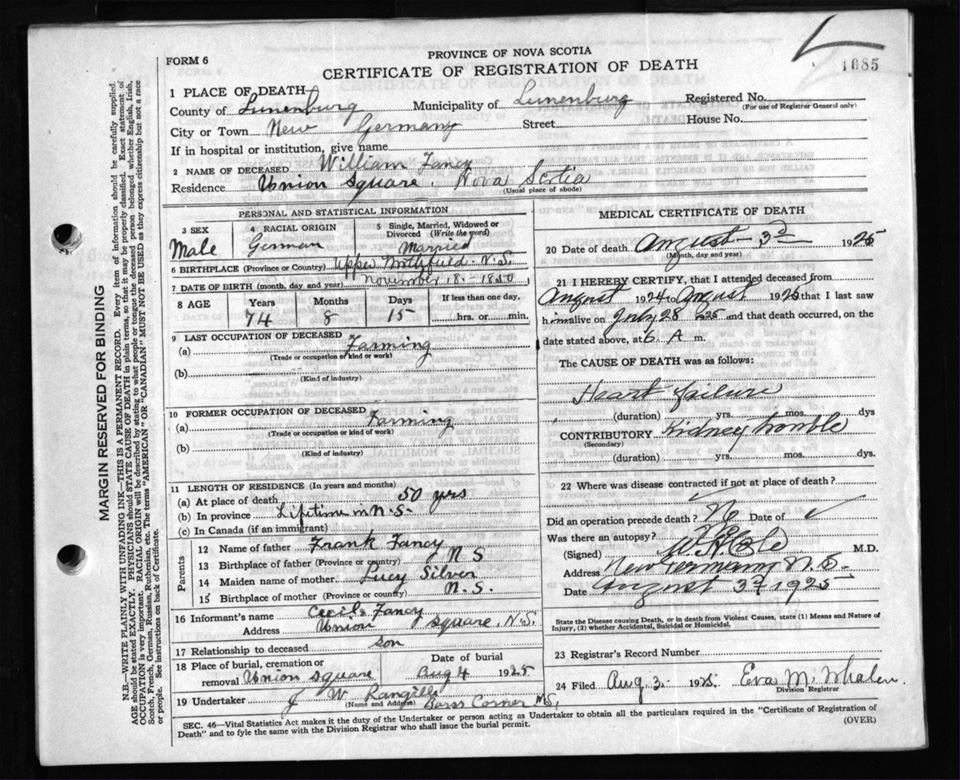 PROVINCE OF NOVA SCOTIA
FORM 6
CERTIFICATE OF REGISTRATION OF DEATH
1085
1 PLACE OF DEATH
County of Lunenburg Municipality of Lunenburg Registered No.
(For use of Registrar General only)
City or Town New Germany Street House No.
If in hospital or institution, give name
2 NAME OF DECEASED William Fancy
Residence Union Square. Nova Scotia
(Usual place of abode)
PERSONAL AND STATISTICAL INFORMATION
3 SEX Male
4 RACIAL ORIGIN German
5 Single, Married, Widowed or Divorced (Write the word) Married
6 BIRTHPLACE (Province or Country) Upper Northfield. N.S.
7 DATE OF BIRTH (month, day and year) November 18-1850
8 AGE Years Months Days If less than one day,
74 8 15 hrs. or min.
9 LAST OCCUPATION OF DECEASED
(a) Farming
(Trade or occupation or kind of work)
(b)
(Kind of industry)
10 FORMER OCCUPATION OF DECEASED
(a) Farming
(Trade or occupation or kind of work)
(b)
(Kind of industry)
11 LENGTH OF RESIDENCE (In years and months)
(a) At place of death 50 yrs
(b) In province Lifetime in N.S.
(c) In Canada (if an immigrant)
Parents
12 Name of father Frank Fancy
13 Birthplace of father (Province or country) N S
14 Maiden name of mother Lucy Silver
15 Birthplace of mother (Province or country) N.S.
16 Informant's name Cecil Fancy
Address Union Square, N.S.
17 Relationship to deceased son
18 Place of burial, cremation or removal Union Square
Date of burial Aug 4 1925
19 Undertaker J W
(Name and Address) Corner N.S.
MEDICAL CERTIFICATE OF DEATH
20 Date of death August 3rd 1925
(Month, day and year)
21 I HEREBY CERTIFY, that I attended deceased from
August 1924 to August 1925 that I last saw
him alive on July 28 1925 and that death occurred, on
date stated above, at 6. A. m.
The CAUSE OF DEATH was as follows:
Heart failure
(duration) yrs. mos. dys
CONTRIBUTORY Kidney trouble
(Secondary)
(duration) yrs. mos. dys.
22 Where was disease contracted if not at place of death?
Did an operation precede death? No Date of
Was there an autopsy? No
(Signed) M.D.
Address New Germany N.S.
Date August 3rd 1925
State the Disease causing Death, or in death from Violent Causes, state (1) Means and Nature of
Injury, (2) whether Accidental, Suicidal or Homicidal.
23 Registrar's Record Number
24 Filed Aug 3 1925. Eva M. Whalen.
Division Registrar
SEC. 46—Vital Statistics Act makes it the duty of the Undertaker or person acting as Undertaker to obtain all the particulars required in the "Certificate of Registration of
Death" and to fyle the same with the Division Registrar who shall issue the burial permit.
(OVER)
MARGIN RESERVED FOR BINDING
N.B.—WRITE PLAINLY WITH UNFADING INK—THIS IS A PERMANENT RECORD. Every item of information should be carefully supplied.
AGE should be stated EXACTLY. PHYSICIANS should STATE CAUSE OF DEATH in plain terms, so that it may be properly classified. Exact statement of
OCCUPATION is very important. RACIAL ORIGIN will be described by stating to what people or tongue the deceased person belonged whether English, Irish,
Scotch, French, German, Russian, Ruthenian, etc. The terms "AMERICAN" OR "CANADIAN" MUST NOT BE USED as they express citizenship but not a race
or people. See instructions on back of Certificate.